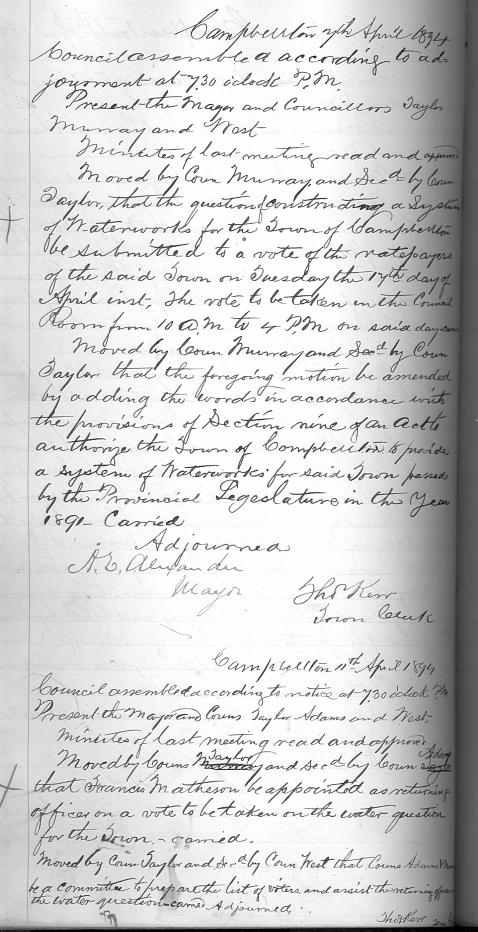 Campbellton 7th April 1894
Council assembled according to ad-
journment at 7.30 oclock P.M.
Present the Mayor and Councillors Taylor
Murray and West
Minutes of last meeting read and approved
Moved by Coun Murray and Secd by Coun
Taylor, that the question of constructing a System
of Waterworks for the Town of Campbellton
be submitted to a vote of the ratepayers
of the said Town on Tuesday the 17th day of
April inst, The vote to be taken in the Council
Room from 10 A.M to 4 P.M on said day
Moved by Coun Murray and Secd by Coun
Taylor that the foregoing motion be amended
by adding the words in accordance with
the provisions of Section nine of an Act to
authorize the Town of Campbellton to provide
a system of Waterworks for said Town passed
by the Provincial Legeslature in the Year
1891 - Carried
Adjourned
A. E. Alexander
Mayor
Thos Kerr
Town Clerk
Campbellton 11th April 1894
Council assembled according to notice at 7.30 oclock P.M
Present the Mayor and Couns Taylor Adams and West-
Minutes of last meeting read and approved
Moved by Couns Taylor and Secd by Coun Adams
that Francis Matheson be appointed as returning
officer on a vote to be taken on the water question
for the Town. - carried.
Moved by Coun Taylor and Secd by Coun West that Couns Adams &
be a committee to prepare the list of voters, and assist the returning officer
the water question - carried Adjourned.
Thos Kerr